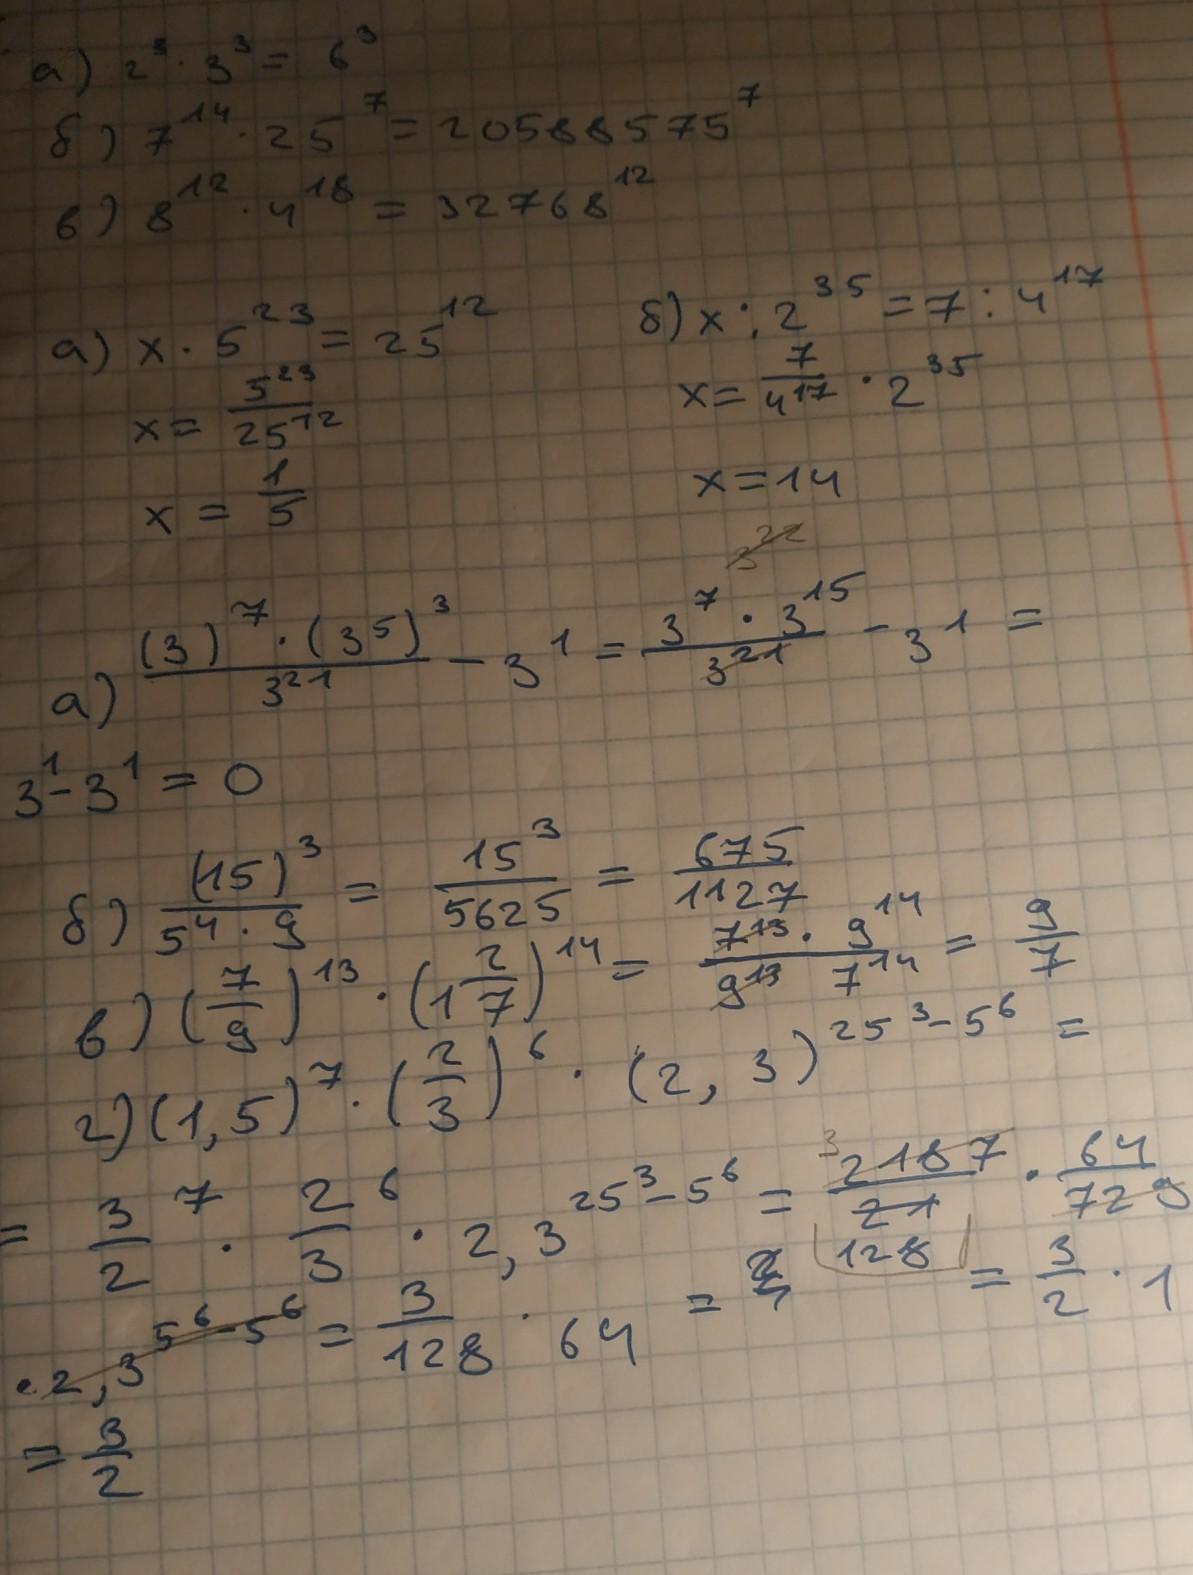 а) 2³ · 3³ = 6³
б) 7¹⁴ · 25⁷ = 20588575⁷
в) 8¹² · 4¹⁸ = 32768¹²
а) x · 5²³ = 25¹²
x = 5²³/25¹²
x = 1/5
б) x : 2³⁵ = 7 : 4¹⁷
x = 7/4¹⁷ · 2³⁵
x = 14
3²²
а) (3)⁷ · (3⁵)³/3²¹ - 3¹ = 3⁷ · 3¹⁵/3²¹ - 3¹ =
3¹ - 3¹ = 0
б) (15)³/5⁴ · 9 = 15³/5625 = 675/1127
в) (7/9)¹³ · (1 2/7)¹⁴ = 7¹³ · 9¹⁴/9¹³ 7¹⁴ = 9/7
г) (1,5)⁷ · (2/3)⁶ · (2,3)²⁵³⁻⁵⁶ =
= 3/2⁷ · 2/3⁶ · 2,3²⁵³⁻⁵⁶ = 3 2187/21 128 · 64/729
· 2,3⁵⁶⁻⁵⁶ = 3/128 · 64 = = 3/2 · 1
= 3/2